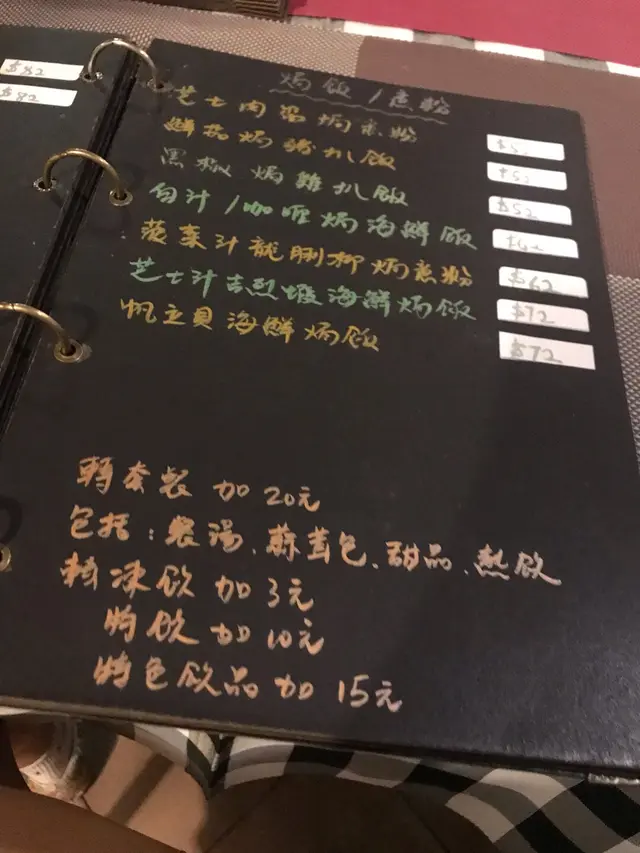 $82
$82
焗飯/意粉
芝士肉醬焗意粉
鮮茄焗豬扒飯
$52
黑椒焗雞扒飯
$52
白汁/咖喱焗海鮮飯
菠菜汁龍脷柳焗意粉
$62
芝士汁吉烈蝦海鮮焗飯
$72
帆立貝海鮮焗飯
$72
轉套餐加20元
包括:餐湯、蒜茸包、甜品、熱飲
轉凍飲加3元
特飲加10元
特色飲品加15元